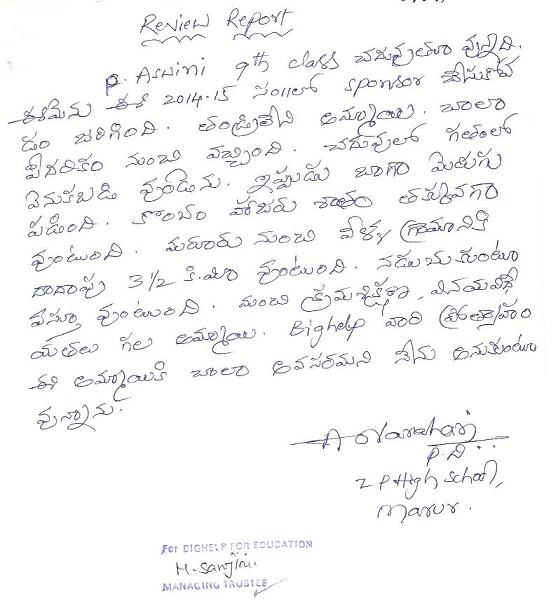 Review Report
P. Aswini 9th class చదువుతూ వున్నది.
ఈమెను ఈ 2014-15 సం॥లో sponsor చేసుకోవ
డం జరిగింది. తండ్రిలేని అమ్మాయి. చాలా
పేదరికం నుంచి వచ్చింది. చదువులో గతంలో
వెనుకబడి వుండెను. ఇప్పుడు బాగా మెరుగు
పడింది. కొంచం హాజరు శాతం తక్కువగా
వుంటుంది. మరూరు నుంచి వీళ్ళ గ్రామానికి
దాదాపు 3 1/2 కి.మీ వుంటుంది. నడుచుకుంటూ
వస్తూ వుంటుంది. మంచి క్రమశిక్షణ, వినయవిధే
యతలు గల అమ్మాయి. Bighelp వారి ప్రోత్సాహం
ఈ అమ్మాయికి చాలా అవసరమని నేను అనుకుంటూ
వున్నాను.
A Narahari
P.D
Z P High School,
Marur.
For BIGHELP FOR EDUCATION
M. Sanjini
MANAGING TRUSTEE